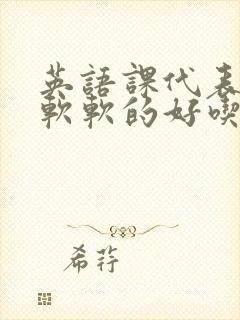 英語課代表
軟軟的好喫
希荇